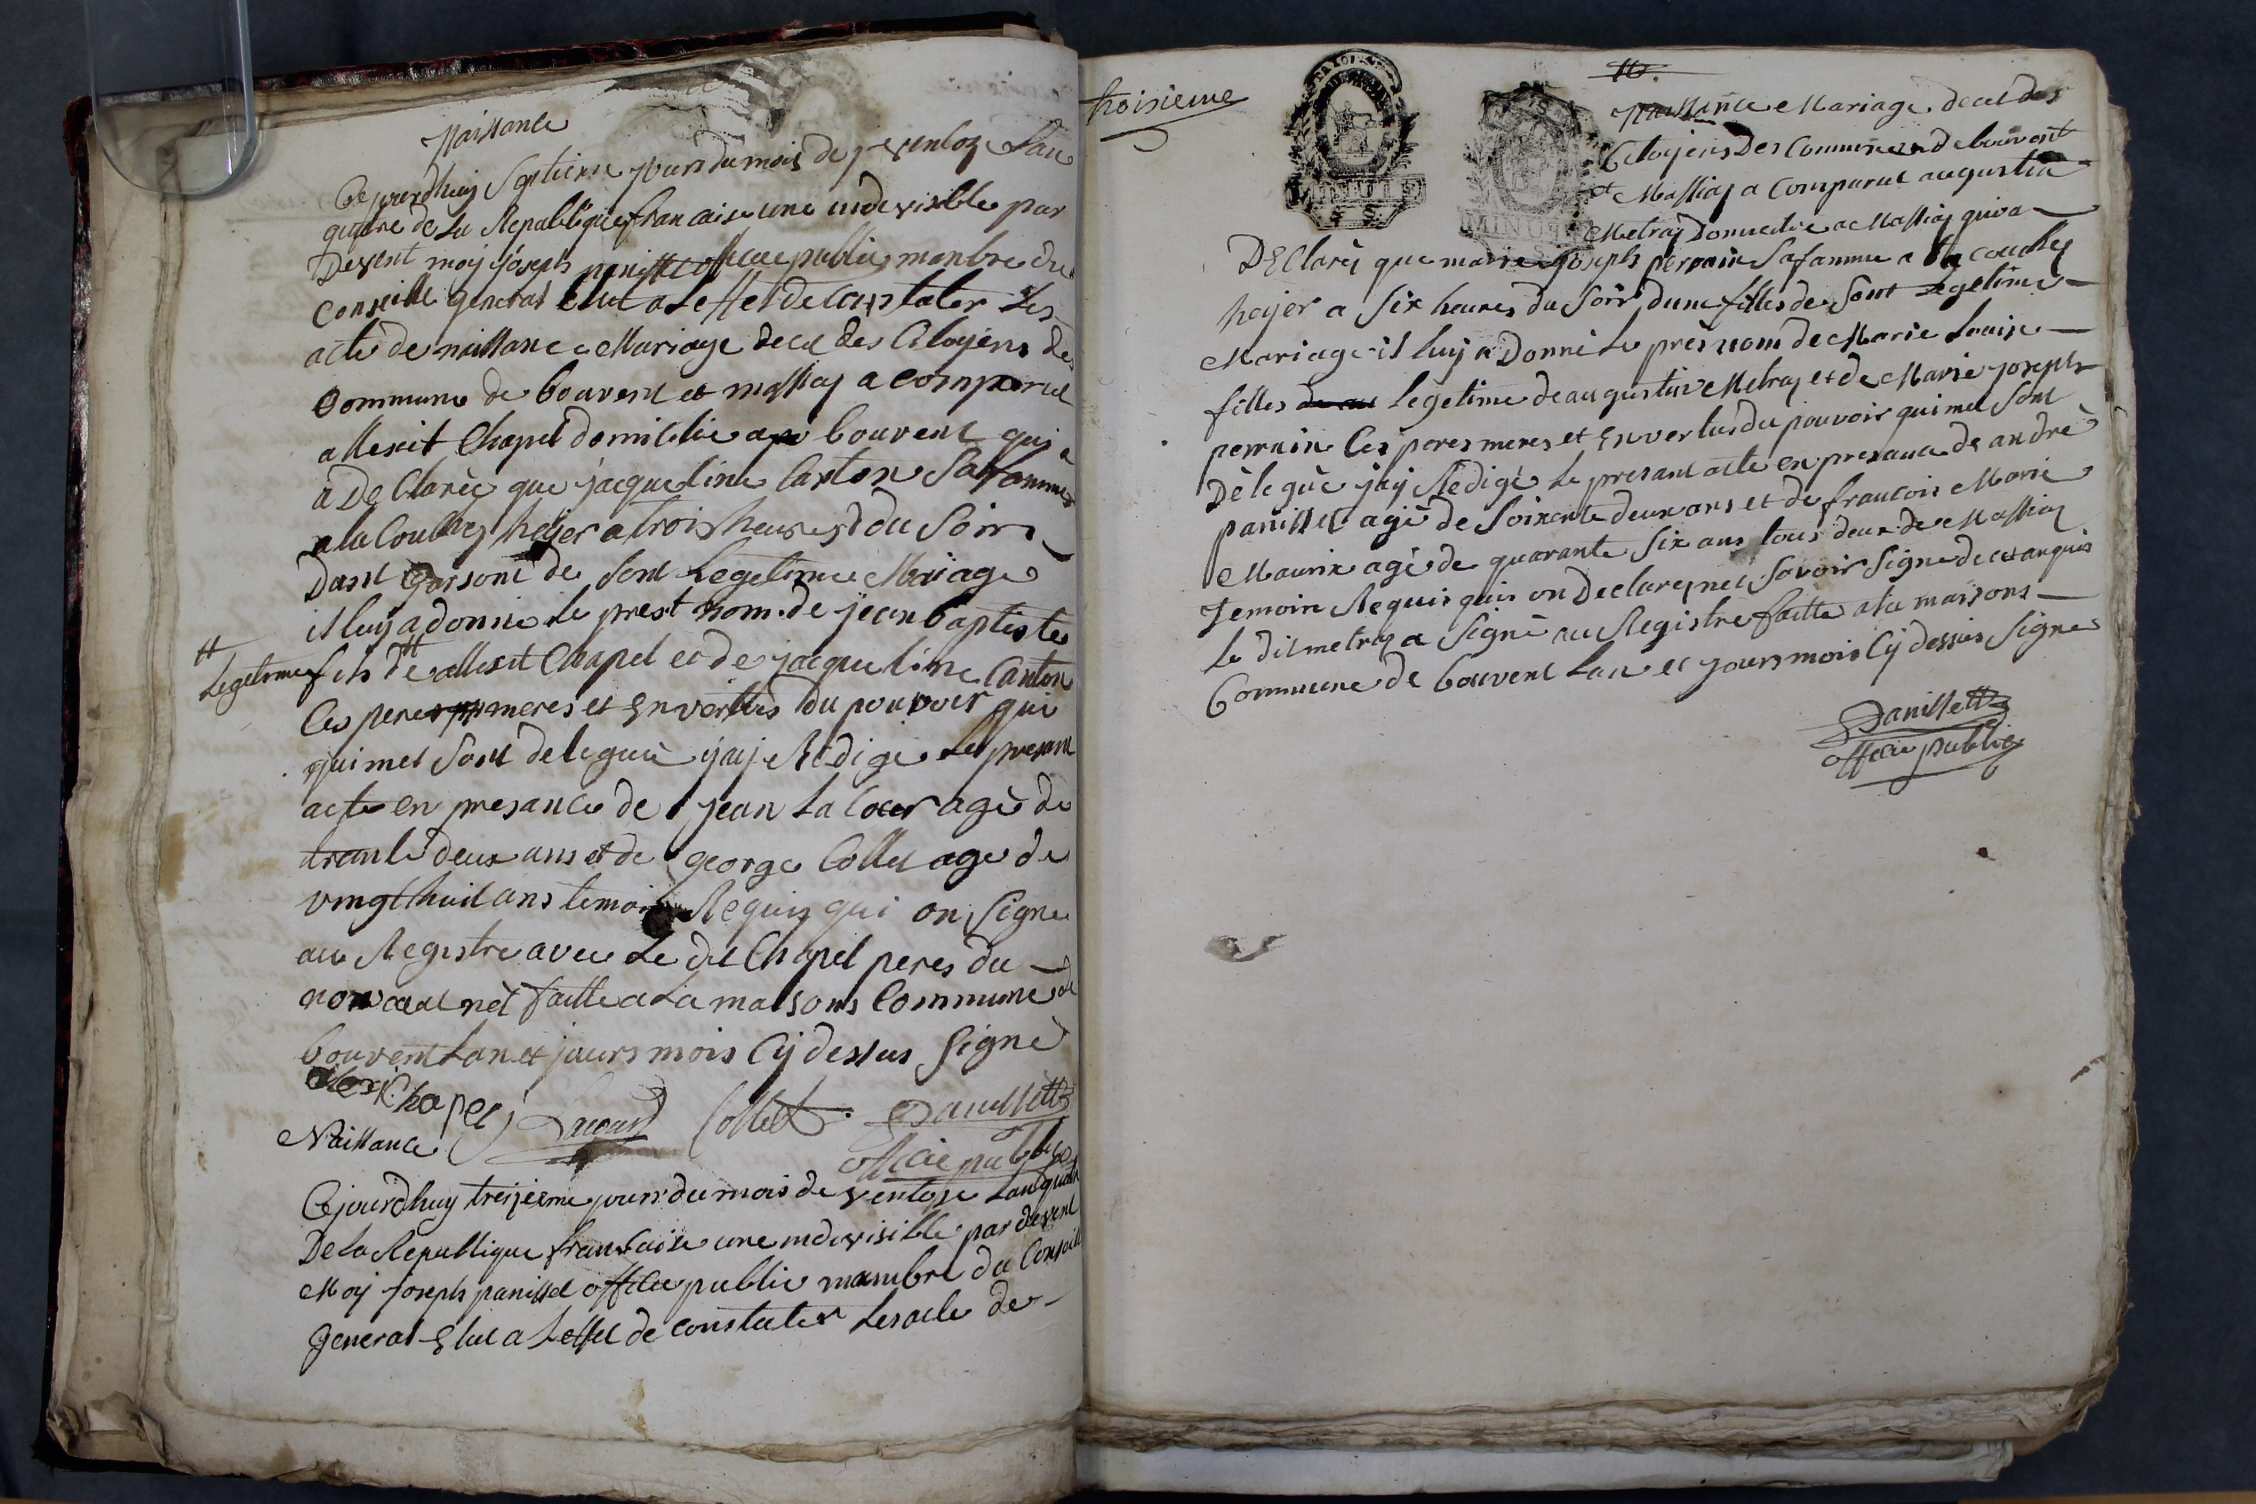 Naissance
Cejourdhuy Septieme jours du mois de ventoz Lan
quatre de La Republique francaise une indevisible par
Devent moy joseph panisset office public manbre du
Conseille general Elut a Leffet de Constater Les
acte de naissance Mariage decel des Citoyens des
Commune de bouvent et massiaj a comparut
allexit Chapel domicilie a bouvent qui
a DeClarèe que jacqueline Canton Sa famme
a la Couchez hejer a trois heures du Soir
Dunt garsont de Sont Legetime Mariage
il luy a donne le prest nom de jean baptiste
#
Legetime
fils de # allexit Chapel et de jacqueline Canton
Ces peres meres et En vertus du pouvoir qui
qui met Sont deleguè j'aj Rèdigè Le presant
acte en presance de jean La Cour agè de
trante deux ans et de george Collet age de
vingt huit ans temoin Requis qui on Signe
au Registre avec Le dit Chapel peres du
nouveau nèt faitte a La maisons Commune de
bouvent Lan et jours mois Cy dessus Signè
allexi Chapel Lacour Collet Panissett
office public
Naissance
Cejourdhuy treizieme jours du mois de ventoze Lan quatre
De La Republique francaise une indevisible par devent
Moy joseph panisset office public manbre du Conseille
General Elut a Leffet de constater Les acte de
troisieme
10.
MINUTE
MINUTE
Naissance Mariage decel des
Citoyens Des Commune de bouvent
et Massiaj a Comparut augustin
Metraj Domicilie a Massiaj qui a
DEClarèz que marie joseph perrain Sa famme a la couchez
hejer a Six heures du Soir dune filles de Sont Legetime
Mariage il luy a Donnè Le presnom de Marie Louise
filles Legetime de augustin Metraj et de Marie joseph
perrain Ces peres meres et En vertus du pouvoir qui met Sont
Dèleguè jaÿ Rèdigè Le presant acte en presance de andrè
panisset agè de Soixente deux ans et de francois Marie
Maurix agè de quarante Six ans tous deux de Massiaj
Temoin Requis quis on Declarez net Savoir Signe de ce anquis
Le dit metraj a Signè au Registre faitte a la maisons
Commune de bouvent Lan et jours mois Cy dessus Signe
Panissett
office public